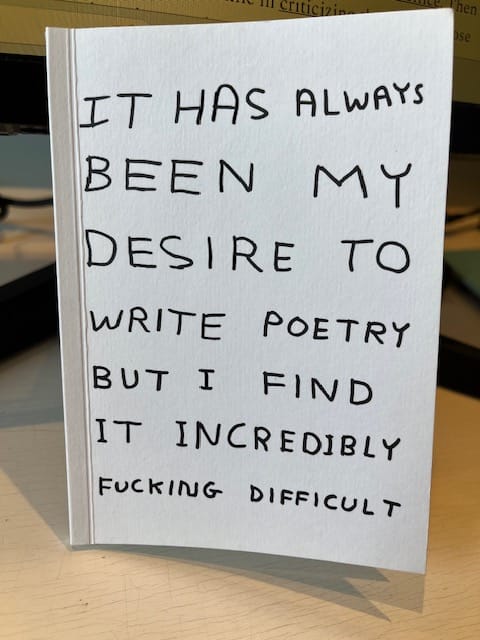 in criticizing
Then
IT HAS ALWAYS
BEEN MY
DESIRE TO
WRITE POETRY
BUT I FIND
IT INCREDIBLY
FUCKING DIFFICULT